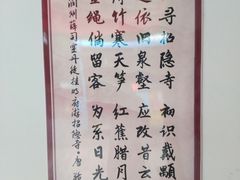 寻招隐寺 初识戴颙
依旧泉壑 应改昔云
竹寒天笋 红蕉腊月
绳倘留客 为系日光
润州薛司空丹徒桂明府游招隐寺 唐